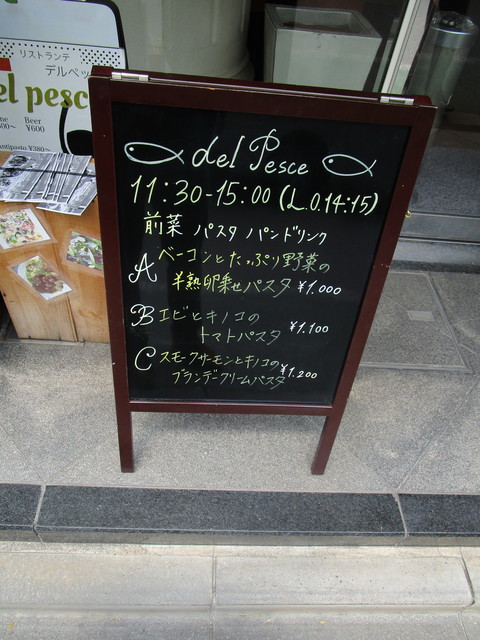 リストランテ
デルペッ
el pesc
Beer
¥600
ntipasto ¥380~
del Pesce
11:30-15:00 (L.O.14:15)
前菜 パスタ パン ドリンク
A ベーコンとたっぷり野菜の
半熟卵乗せパスタ ¥1.000
B エビとキノコの
トマトパスタ ¥1.100
C スモークサーモンとキノコの
ブランデークリームパスタ ¥1.200